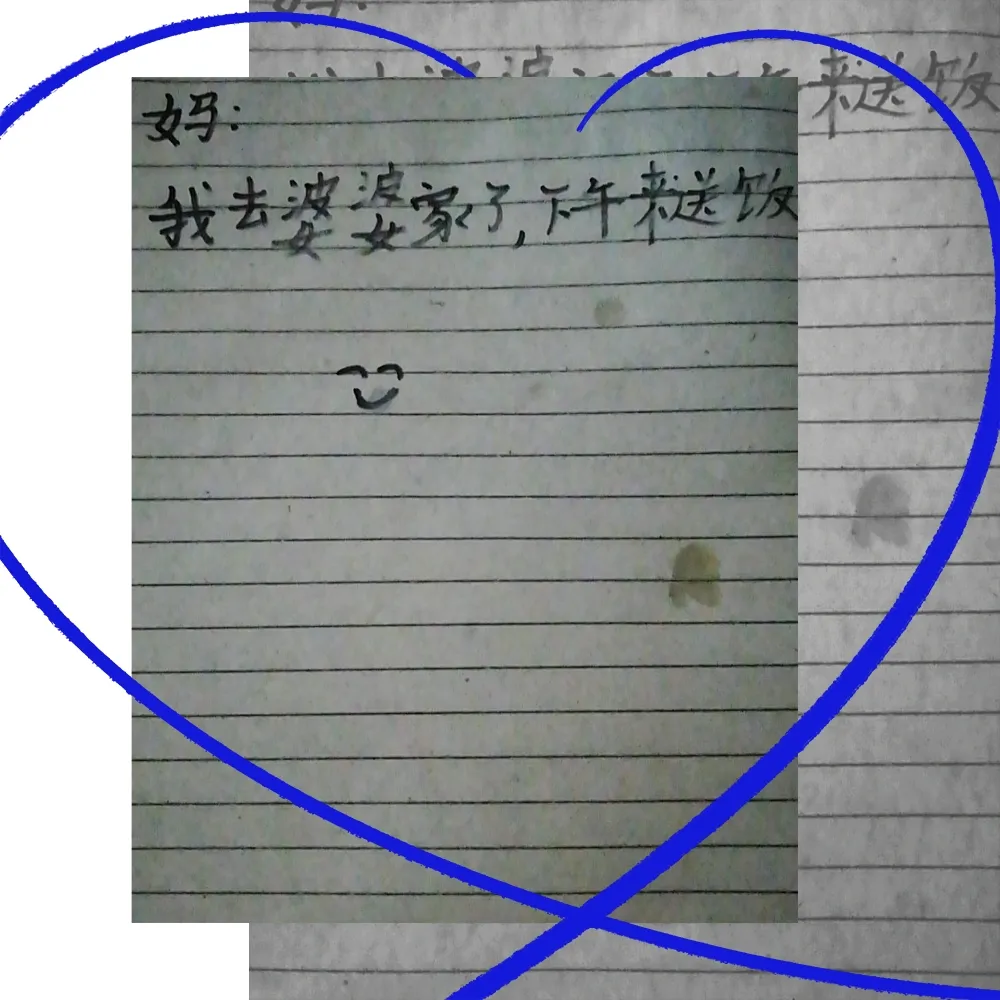 来送饭
妈:
我去婆婆家了,下午来送饭